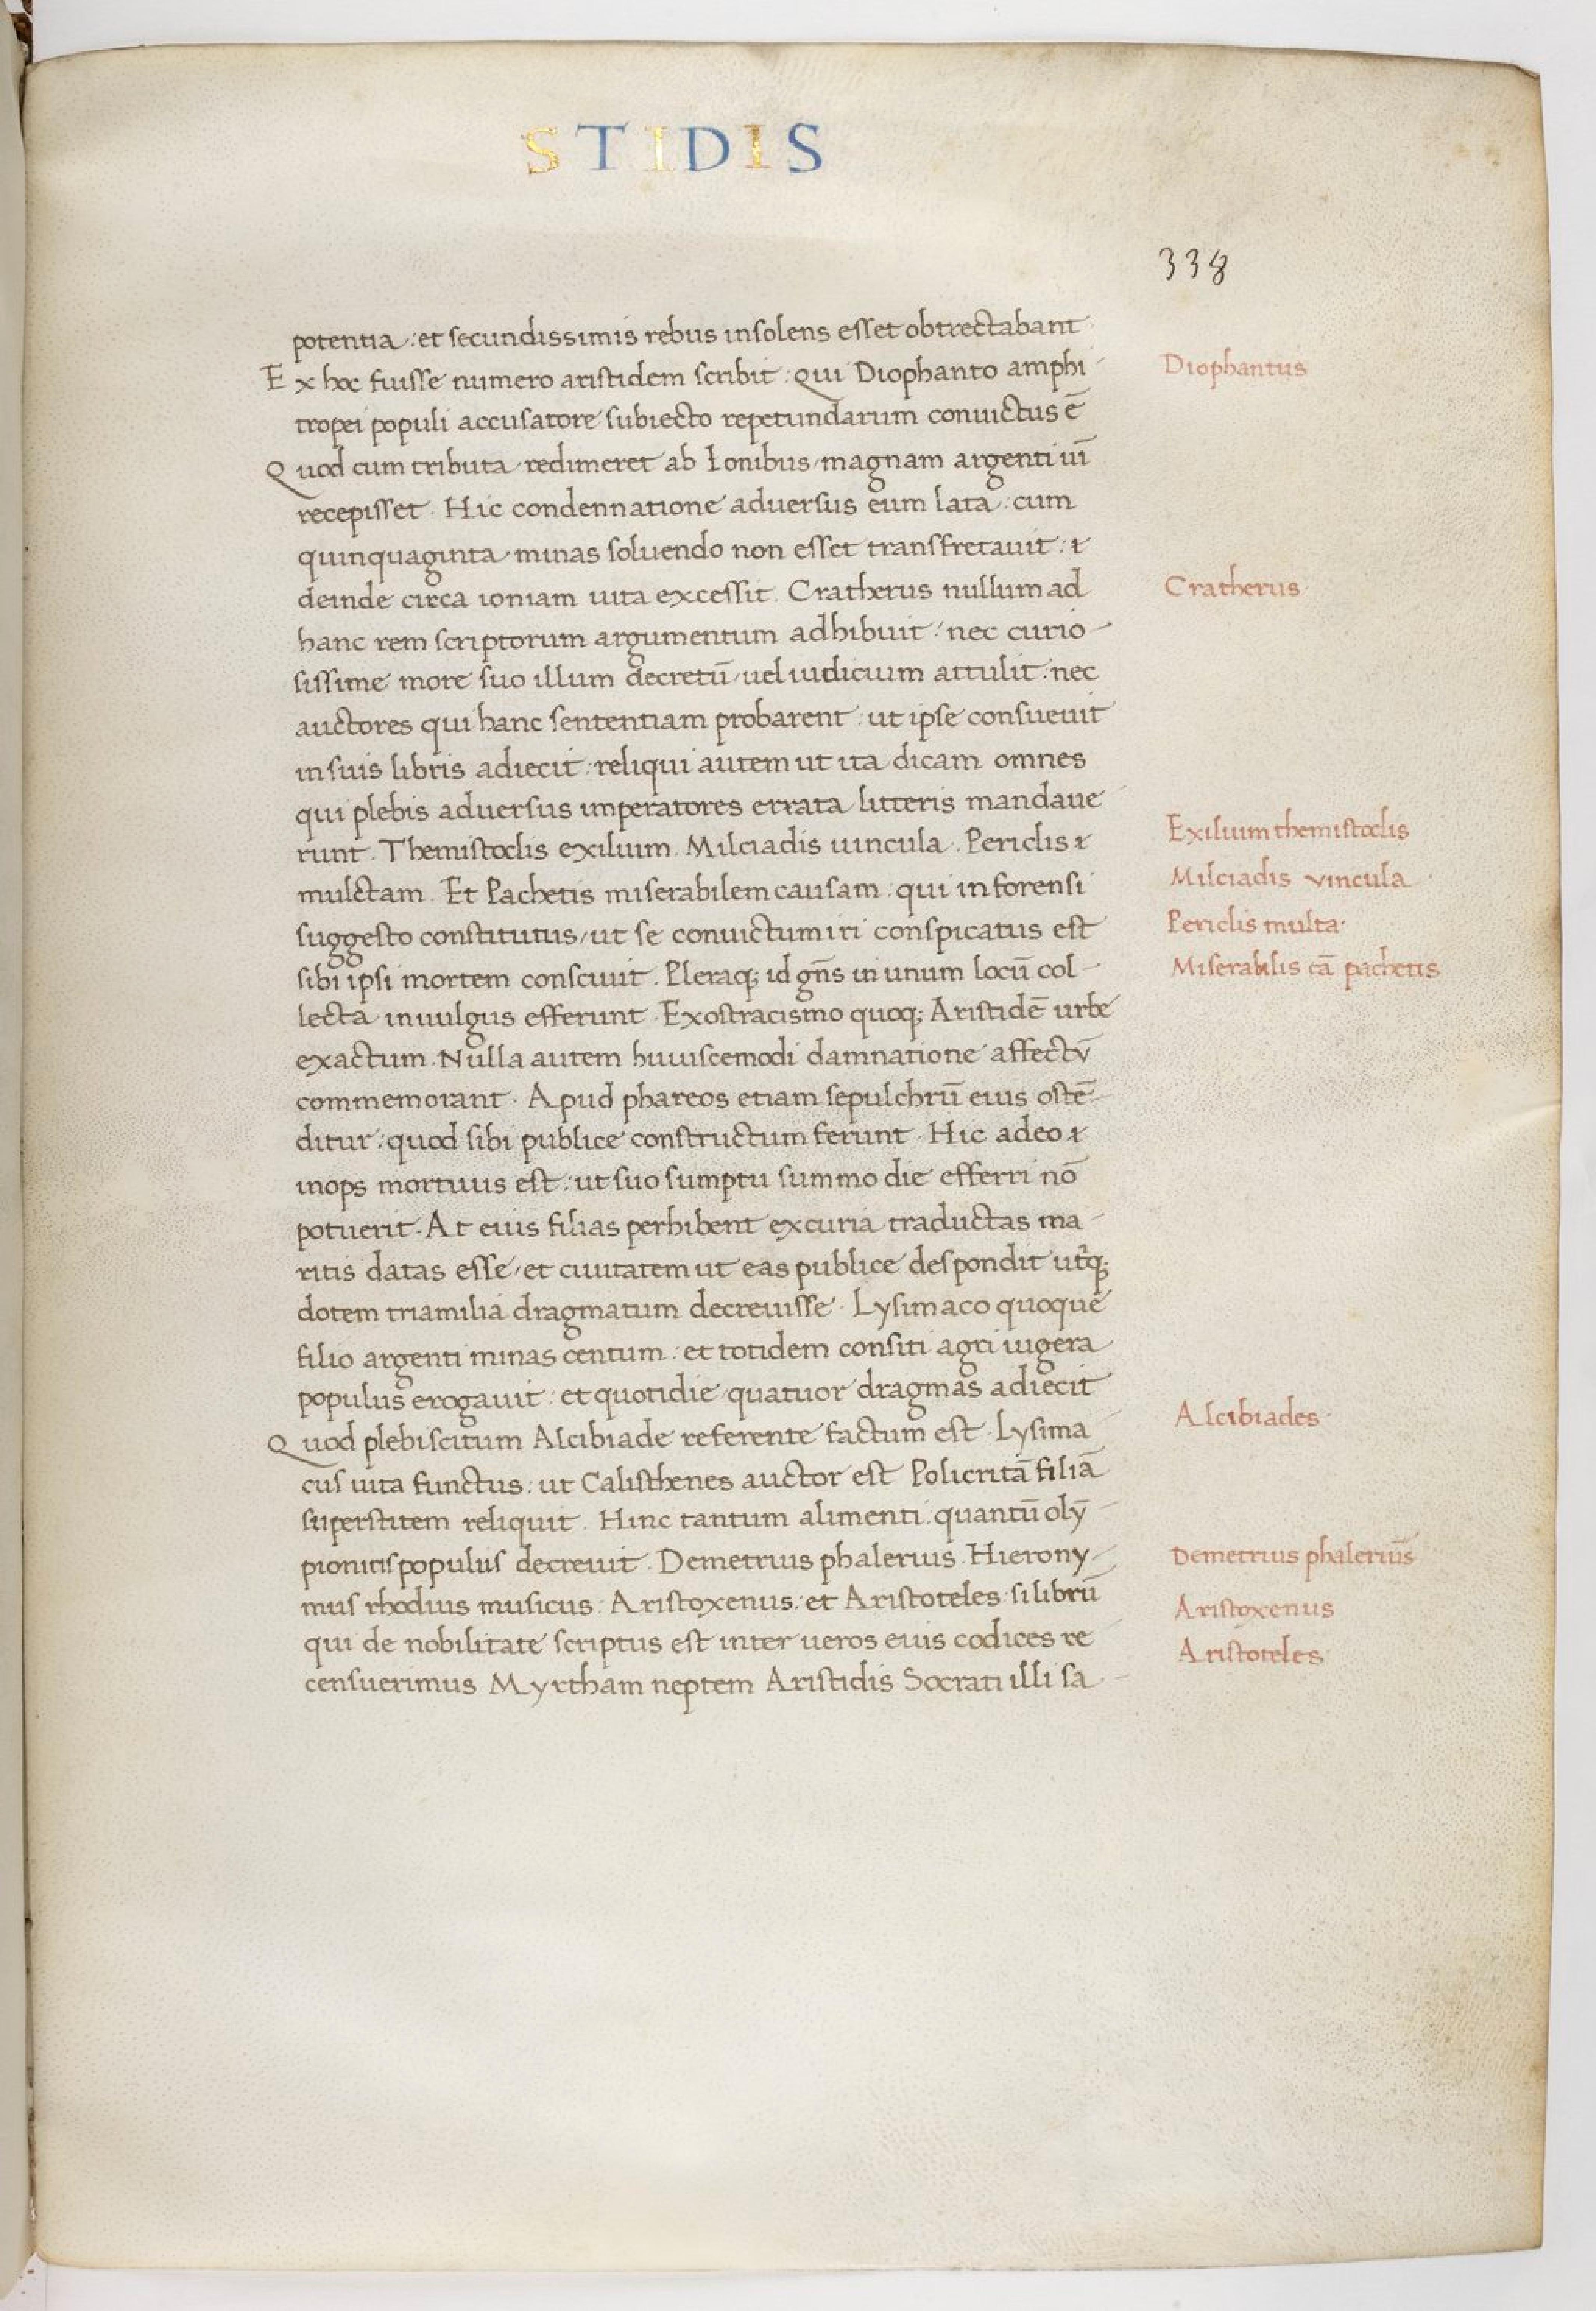 STIDIS
338
potentia : et secundissimis rebus insolens esset obtrectabant
Ex hoc fuisse numero aristidem scribit : qui Diophanto amphi
tropei populi accusatore subiecto repetundarum conuictus ē
Quod cum tributa redimeret ab Ionibus, magnam argenti uī
recepisset . Hic condennatione aduersus eum lata : cum
quinquaginta minas soluendo non esset transfretauit : &
deinde circa ioniam uita excessit . Cratherus nullum ad
hanc rem scriptorum argumentum adhibuit : nec curio-
sissime more suo illum decretū, uel iudicium attulit : nec
auctores qui hanc sententiam probarent : ut ipse consueuit
in suis libris adiecit : reliqui autem ut ita dicam omnes
qui plebis aduersus imperatores errata litteris mandaue
runt . Themistoclis exilium . Milciadis uincula . Periclis &
mulctam . Et Pachetis miserabilem causam : qui in forensi
suggesto constitutus, ut se conuictum iri conspicatus est
sibi ipsi mortem consciuit . Pleraq; id gn̄s in unum locū col-
lecta in uulgus efferunt . Exostracismo quoq; Aristidē urbe
exactum . Nulla autem huiuscemodi damnatione affectū
commemorant . Apud phareos etiam sepulchrū eius ostē-
ditur : quod sibi publice constructum ferunt . Hic adeo &
inops mortuus est : ut suo sumptu summo die efferri nō
potuerit . At eius filias perhibent ex curia traductas ma-
ritis datas esse, et ciuitatem ut eas publice despondit utrq;
dotem triamilia dragmatum decreuisse . Lysimaco quoque
filio argenti minas centum : et totidem consiti agri iugera
populus erogauit : et quotidie quatuor dragmas adiecit
Quod plebiscitum Alcibiade referente factum est . Lysima
cus uita functus : ut Calisthenes auctor est Policritā filiā
superstitem reliquit . Hinc tantum alimenti : quantū olȳ
pionitis populus decreuit . Demetrius phalerius . Hierony-
mus rhodius musicus : Aristoxenus : et Aristoteles : si librū
qui de nobilitate scriptus est inter ueros eius codices re
censuerimus Myrtham neptem Aristidis Socrati illi sa-
Diophantus
Cratherus
Exilium themistoclis
Milciadis vincula
Periclis multa
Miserabilis cā pachetis
Alcibiades
Demetrius phalerius
Aristoxenus
Aristoteles